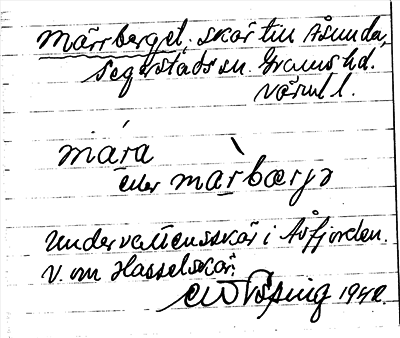 Märrberget, skär till Åsunda,
Segerstads sn. Grums hd.
Värml l.
mára
eller màrbærjə
Undervattensskär i Åsfjorden.
V. om Hasselskär.
1942.